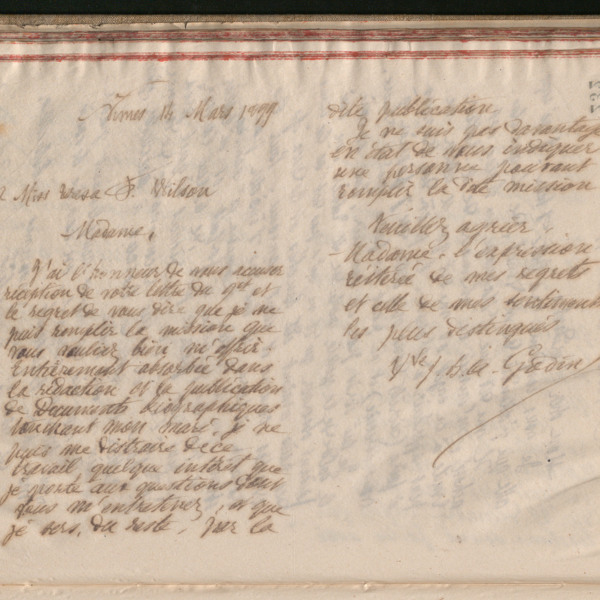 Nîmes 14 Mars 1899
Miss Rosa F. Wilson
Madame,
J'ai l'honneur de vous accuser
réception de votre lettre du 9 ct et
le regret de vous dire que je ne
puis remplir la mission que
vous vouliez bien m'offrir.
Entièrement absorbée dans
la rédaction et la publication
de Documents biographiques
touchant mon mari, je ne
puis me distraire de ce
travail quelque intérêt que
je porte aux questions dont
vous m'entretenez, et que
je sers, du reste, par la
dite publication.
Je ne suis pas davantage
en état de vous indiquer
une personne pouvant
remplir la dite mission
Veuillez agréer
Madame, l'expression
réitérée de mes regrets
et celle de mes sentiments
les plus distingués
Vve Godin